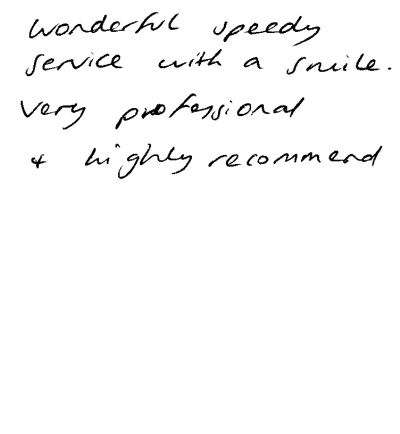 Wonderful speedy
service with a smile.
Very professional
+ highly recommend